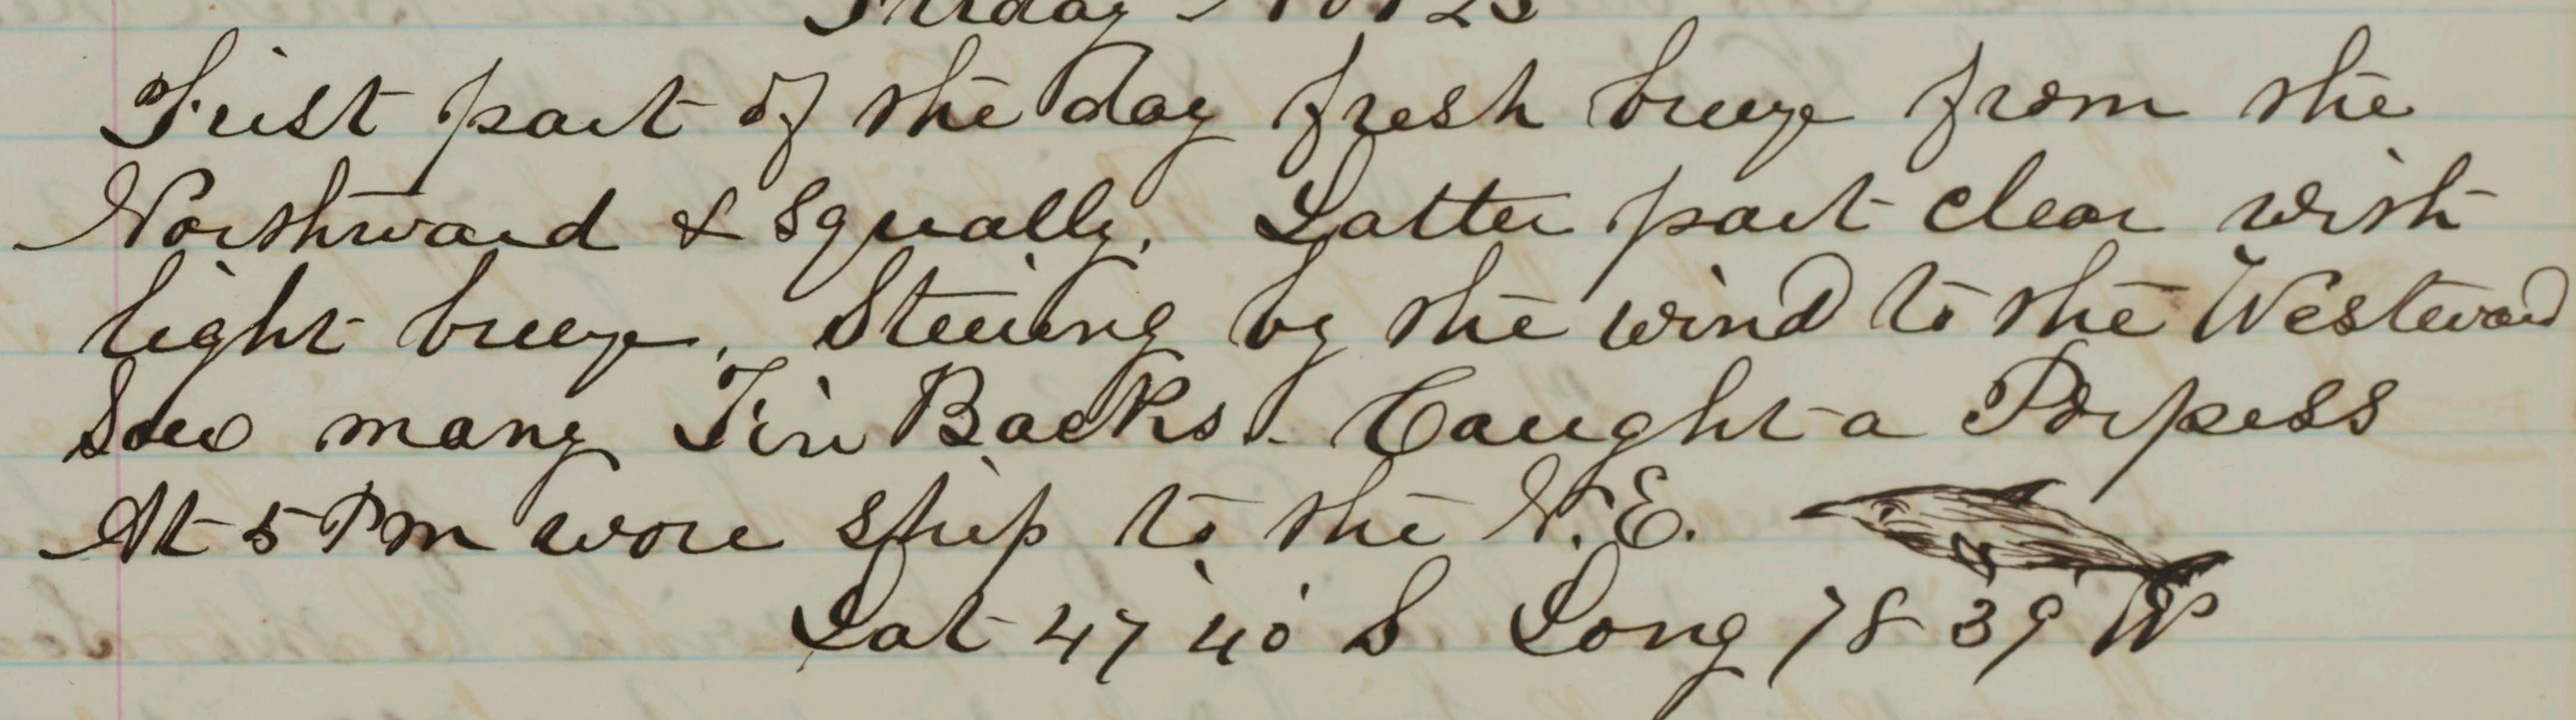 Friday Nov 23
First part of the day fresh breeze from the
Northward & Squally. Latter part clear with
light breeze. Steering by the wind to the Westward
Saw many Fin Backs. Caught a Porpess
At 5 Pm wore ship to the N.E.
Lat 47 40 S Long 78 39 W